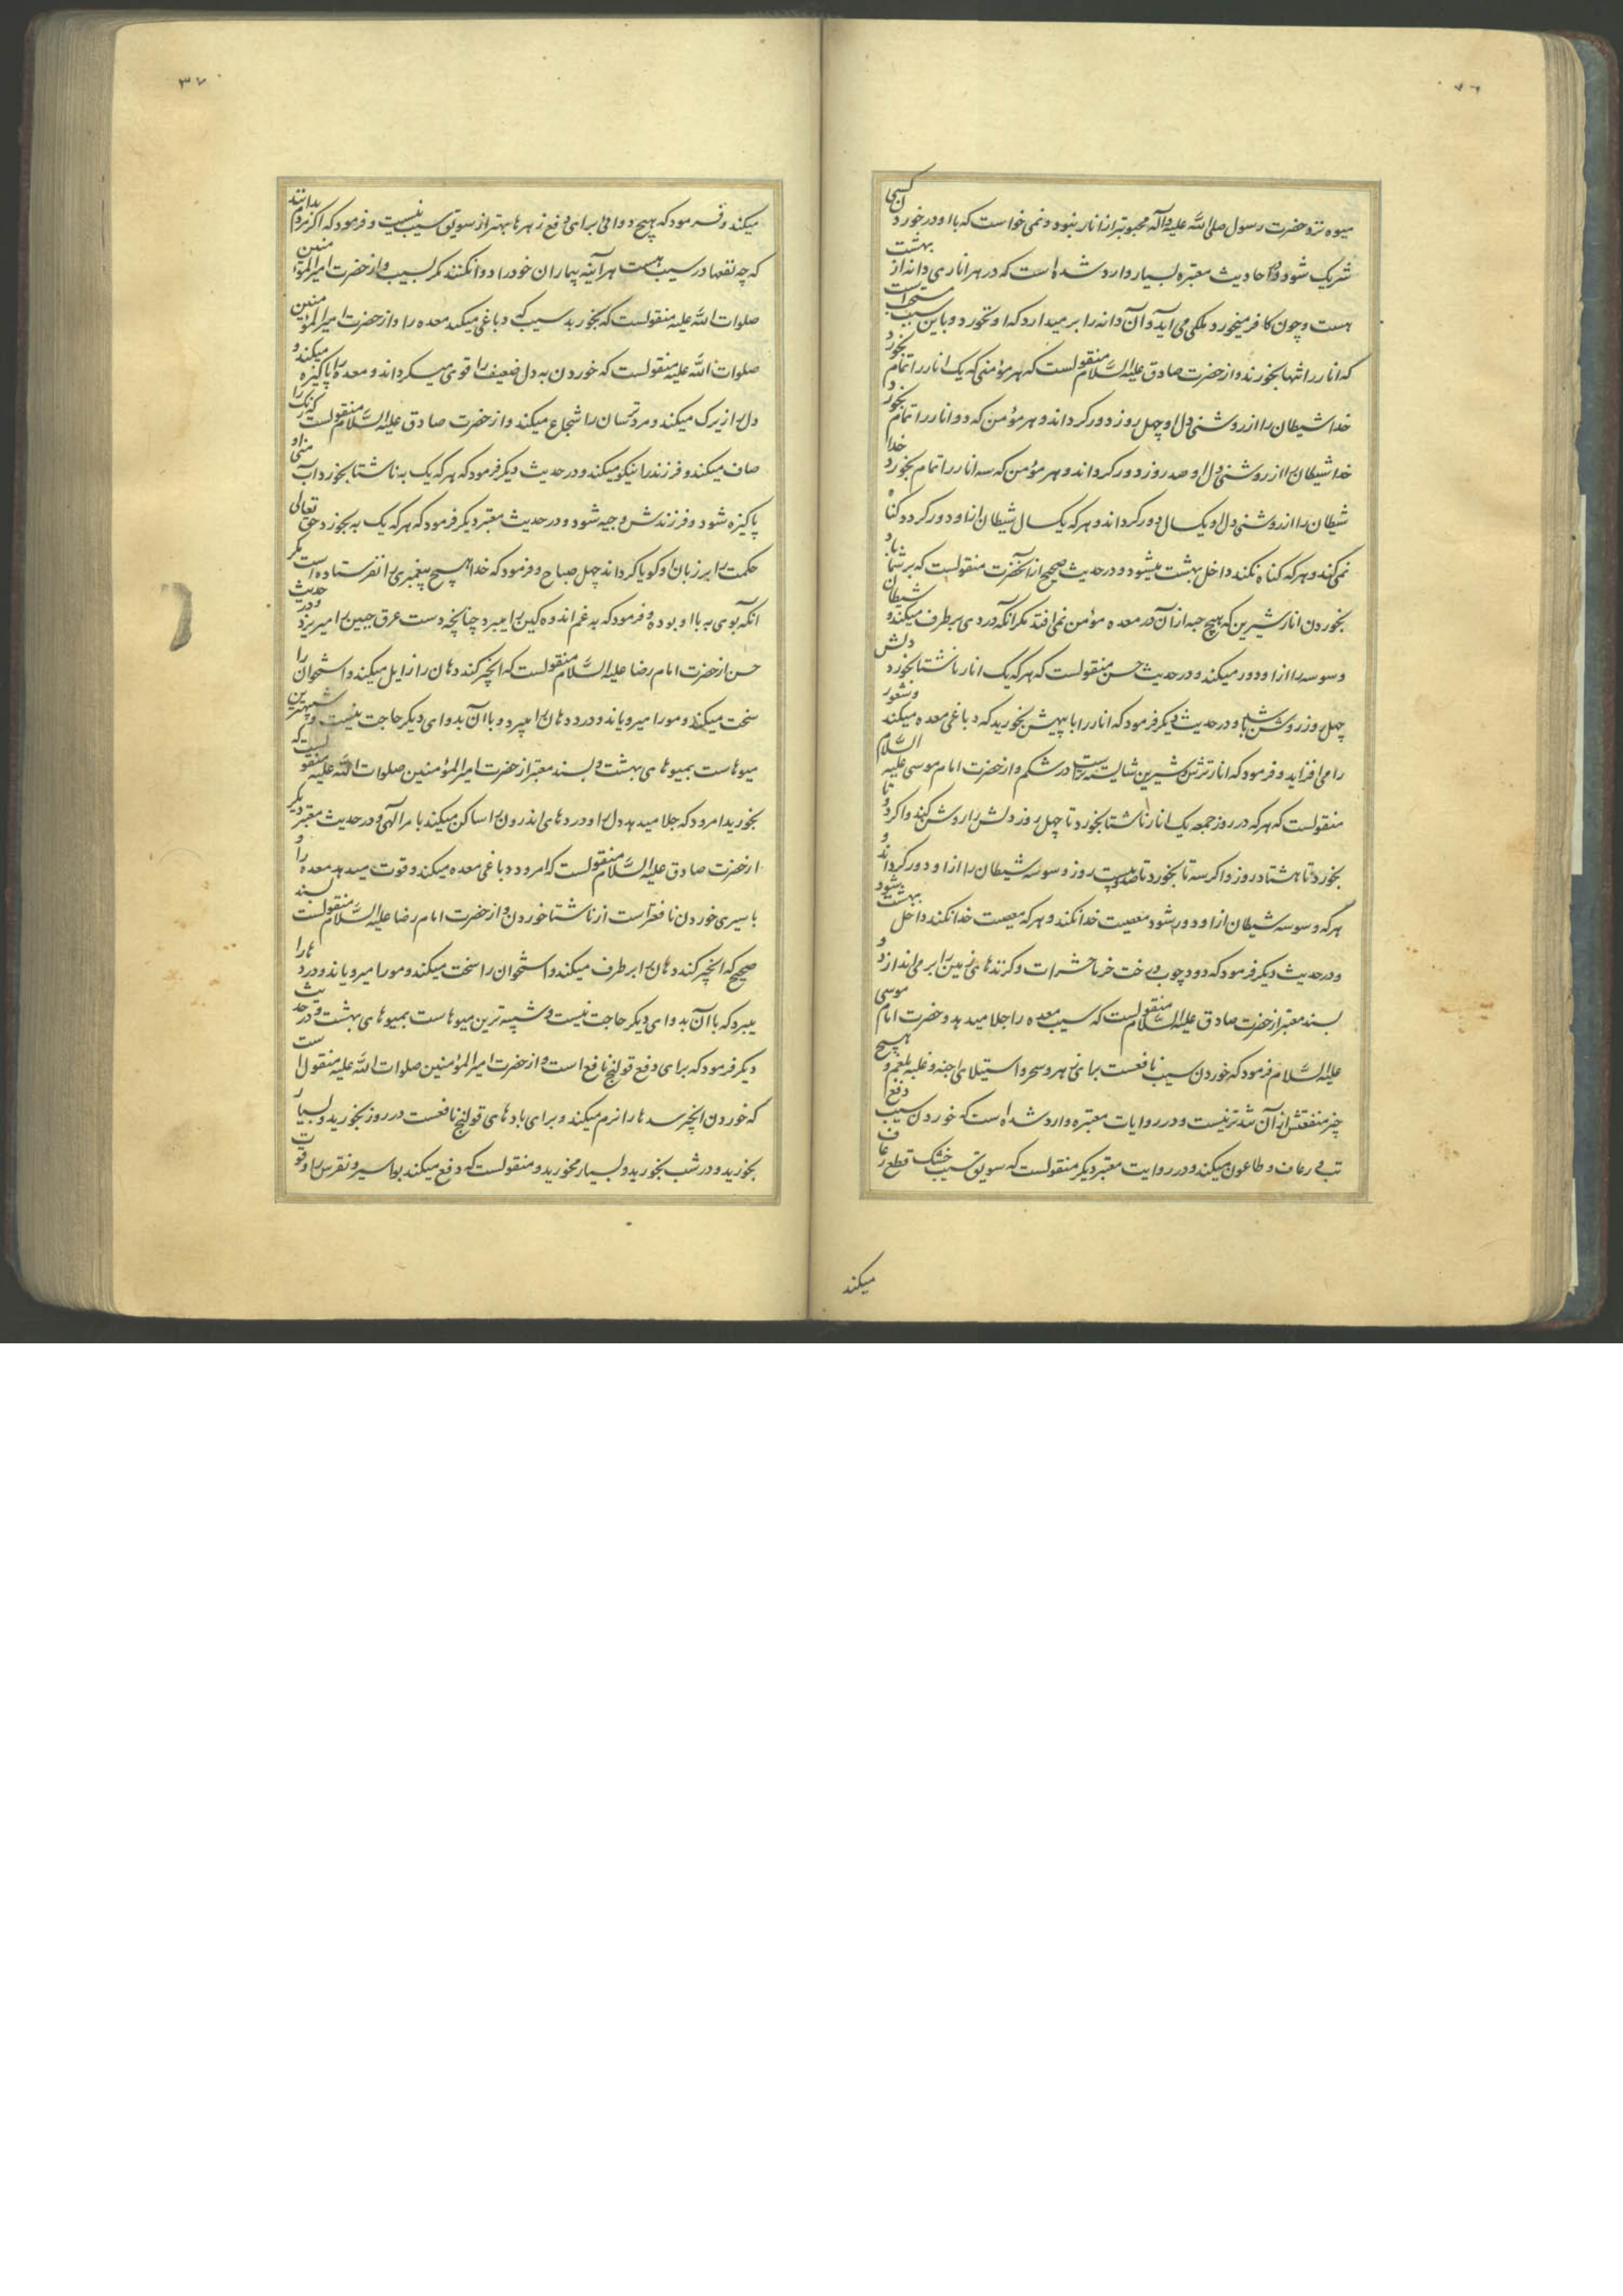 ۷۶
میوه نزد حضرت رسول صلی الله علیه وآله محبوبتر از انار نبود و نمی خواست که با او در خوردن کسی
شریک شود و در احادیث معتبره بسیار وارد شده است که در هر اناری دانه از بهشت
هست و چون کافر میخورد ملکی می آید و آن دانه را بر میدارد که او نخورد و باین سبب مستحب است
که انار را تنها بخورند و از حضرت صادق علیه السلام منقولست که هر مؤمنی که یک انار را تمام بخورد
خدا شیطان را از روشنی دل او چهل روز دور گرداند و هر مؤمن که دو انار را تمام بخورد
خدا شیطان را از روشنی دل او صد روز دور گرداند و هر مؤمن که سه انار را تمام بخورد خدا
شیطان را از روشنی دل او یکسال دور گرداند و هر که یکسال شیطان از او دور گردد گناه
نمی کند و هر که گناه نکند داخل بهشت میشود و در حدیث صحیح از آنحضرت منقولست که بر شما باد
بخوردن انار شیرین که هیچ حبه از آن در معده مؤمن نمی افتد مگر آنکه دردی برطرف میکند و شیطان
وسوسه را از او دور میکند و در حدیث حسن منقولست که هر که یک انار ناشتا بخورد دلش
چهل روز روشن باشد و در حدیث دیگر فرمود که انار را با پیهش بخورید که دباغی معده میکند و شعور
را می افزاید و فرمود که انار ترش و شیرین شایسته تر است در شکم و از حضرت امام موسی علیه السلام
منقولست که هر که در روز جمعه یک انار ناشتا بخورد تا چهل روز دلش را روشن کند و اگر دو تا
بخورد تا هشتاد روز و اگر سه تا بخورد تا صد و بیست روز وسوسه شیطان را از او دور گرداند و
هر که وسوسه شیطان از او دور شود معصیت خدا نکند و هر که معصیت خدا نکند داخل بهشت شود
و در حدیث دیگر فرمود که دود چوب درخت خرما حشرات و گزنده های زمین را بر می اندازد و
بسند معتبر از حضرت صادق علیه السلام منقولست که سیب معده را جلا میدهد و حضرت امام موسی
علیه السلام فرمود که خوردن سیب نافعست برای زهر و سحر و استیلای اجنه و غلبه بلغم و هیچ
چیز منفعتش از آن تندتر نیست و در روایات معتبره وارد شده است که خوردن سیب دفع
تب و رعاف و طاعون میکند و در روایت معتبر دیگر منقولست که سویق سیب خشک قطع رعاف
میکند
۳۷
میکند و فرمود که هیچ دوائی برای دفع زهرها بهتر از سویق سیب نیست و فرمود که اگر مردم بدانند
که چه نفعها در سیب هست هر آینه بیماران خود را دوا نکنند مگر بسیب و از حضرت امیرالمؤمنین
صلوات الله علیه منقولست که بخورید سیب که دباغی میکند معده را و از حضرت امیرالمؤمنین
صلوات الله علیه منقولست که خوردن به دل ضعیف را قوی میگرداند و معده را پاکیزه میکند و
دل را زیرک میکند و مرد ترسان را شجاع میکند و از حضرت صادق علیه السلام منقولست که رنگ را
صاف میکند و فرزند را نیکو میکند و در حدیث دیگر فرمود که هر که یک به ناشتا بخورد آب منی او
پاکیزه شود و فرزندش وجیه شود و در حدیث معتبر دیگر فرمود که هر که یک به بخورد حق تعالی
حکمت را بر زبان او گویا گرداند چهل صباح و فرمود که خدا هیچ پیغمبری را نفرستاده است مگر
آنکه بوی به با او بوده و فرمود که به غم اندوه گین را میبرد چنانچه دست عرق جبین را میریزد و در حدیث
حسن از حضرت امام رضا علیه السلام منقولست که انجیر گند دهان را زایل میکند و استخوان را
سخت میکند و مو را میرویاند و درد دهان را میبرد و با آن بدوای دیگر حاجت نیست و شبیهترین
میوهاست بمیوهای بهشت و بسند معتبر از حضرت امیرالمؤمنین صلوات الله علیه منقولست که
بخورید امرود که جلا میدهد دل را و دردهای اندرون را ساکن میکند بامر الهی و در حدیث معتبر دیگر
از حضرت صادق علیه السلام منقولست که امرود دباغی معده میکند و قوت میدهد معده را و
با سیری خوردن نافعتر است از ناشتا خوردن و از حضرت امام رضا علیه السلام منقولست بسند
صحیح که انجیر گند دهان را برطرف میکند و استخوان را سخت میکند و مو را میرویاند و دردها را
میبرد که با آن بدوای دیگر حاجت نیست و شبیه ترین میوهاست بمیوهای بهشت و در حدیث
دیگر فرمود که برای دفع قولنج نافع است و از حضرت امیرالمؤمنین صلوات الله علیه منقول است
که خوردن انجیر سدها را نرم میکند و برای بادهای قولنج نافعست در روز بخورید و بسیار
بخورید و در شب بخورید و بسیار مخورید و منقولست که دفع میکند بواسیر و نقرس را و قوت